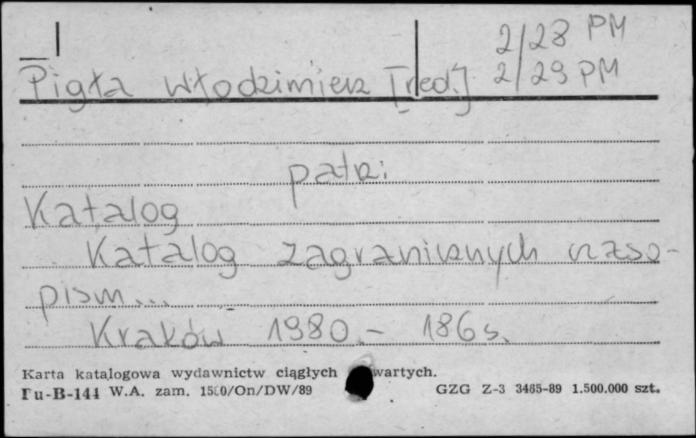 2/28 PM
Pigła Włodzimierz [red.] 2/29 PM
patrz:
Katalog
Katalog zagranicznych czaso-
pism...
Kraków 1980.- 186 s.
Karta katalogowa wydawnictw ciągłych wartych.
Pu-B-144 W.A. zam. 1500/On/DW/89 GZG Z-3 3465-89 1.500.000 szt.